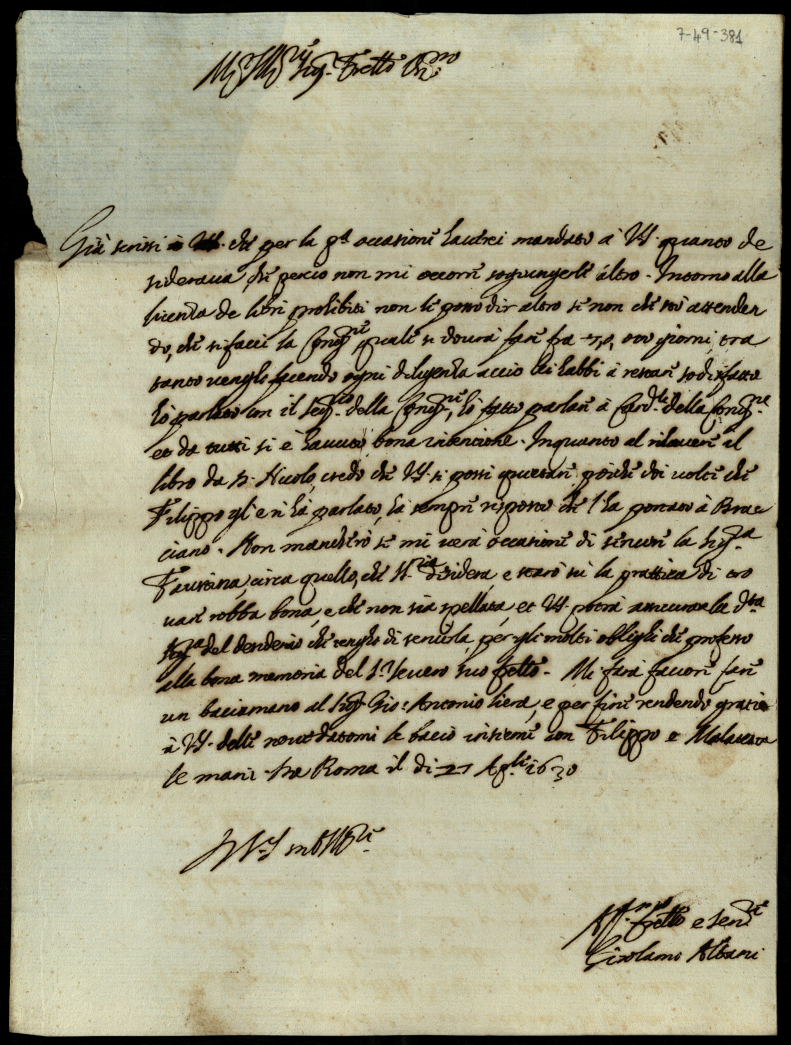 7-49-381
Sig.r Fratello
Già scrissi à V.S. che per la p.a occasione haverei mandato à V.S. quanto de
siderava, che perciò non mi occorre soggiungerle altro. Intorno alla
licenza de libri prohibiti non le posso dir altro se non che stò attenden
do, che si facci la Cong.ne quale si dovrà fare fra otto giorni, tra
tanto vengho facendo ogni diligenza acciò lei habbi à restare sodisfatto
hò parlato con il Seg.rio della Cong.ne, hò fatto parlare à Card.li della Cong.ne
et da tutti si è havuto bona intentione. Inquanto al rihavere il
libro da S. Nicolo, credo che V.S. si possi quietare, poiche doi volte che
Filippo gli e n'hà parlato, hà sempre risposto che l'ha portato à Brac
ciano. Non mancherò se mi verà occasione di servire la Sig.ra
Faustina, circa quello, che S.ria desidera e starò sù la prattica di tro
vare robba bona, e che non sia spellata, et V.S. potrà assicurare la d.ta
Sig.ra del desiderio che tengho di servirla, per gli molti oblighi che professo
alla bona memoria del S.r Severo suo fratello. Mi farà favore fare
un baciamano al Sig.r Gio: Antonio, e per fine rendendo gratie
à V.S. delle nove datomi le bacio insieme con Filippo e
le mani. Da Roma il dì 27 Ap.le 1630
Di V.S. molto Ill.re
Aff.mo fratello e ser.re
Girolamo Albani